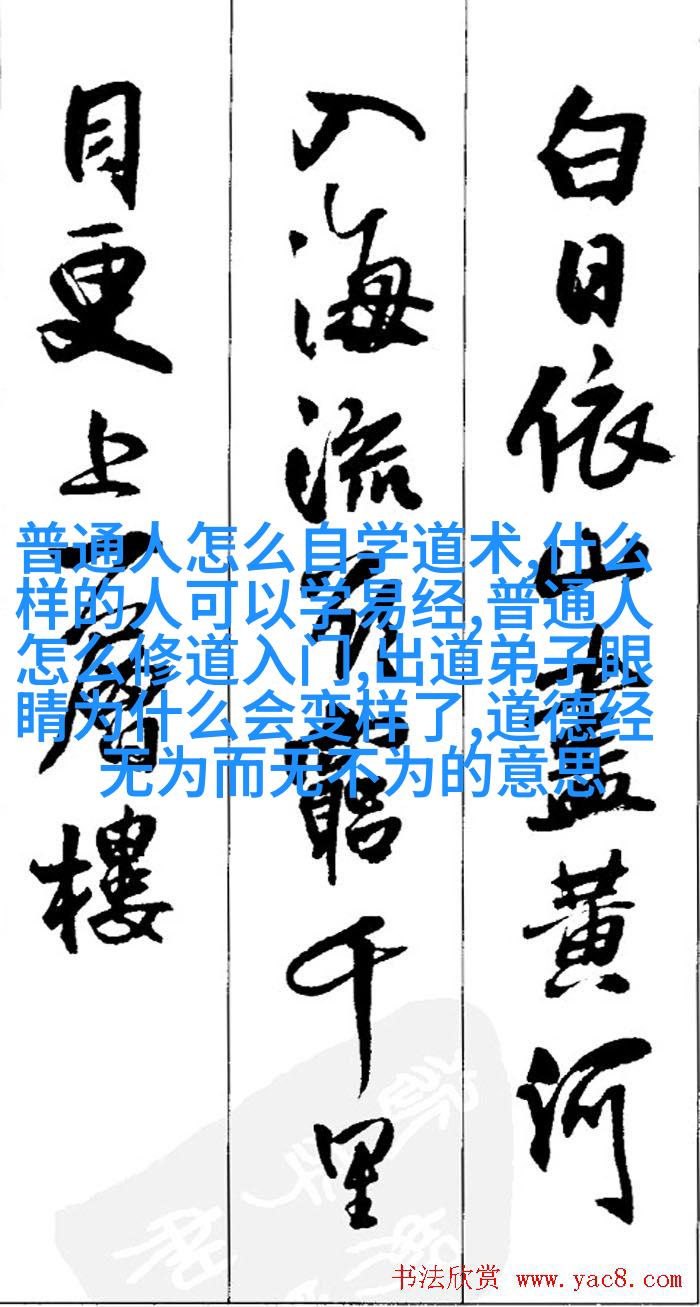 白日依山盡黃河
入海流欲窮千里
目更上一層樓
普通人怎么自学道术,什么
样的人可以学易经,普通人
怎么修道入门,出道弟子眼
睛为什么会变样了,道德经
无为而无不为的意思
书法欣赏 www.yac8.com